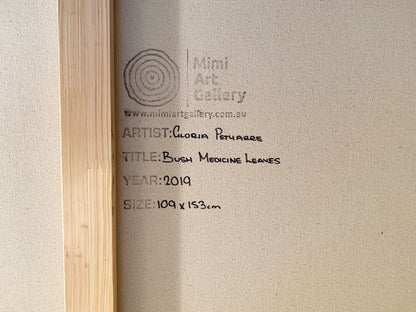 Mimi
Art
Gallery
www.mimiartgallery.com.au
ARTIST: GLORIA PETYARRE
TITLE: BUSH MEDICINE LEAVES
YEAR: 2019
SIZE: 109 x 153cm